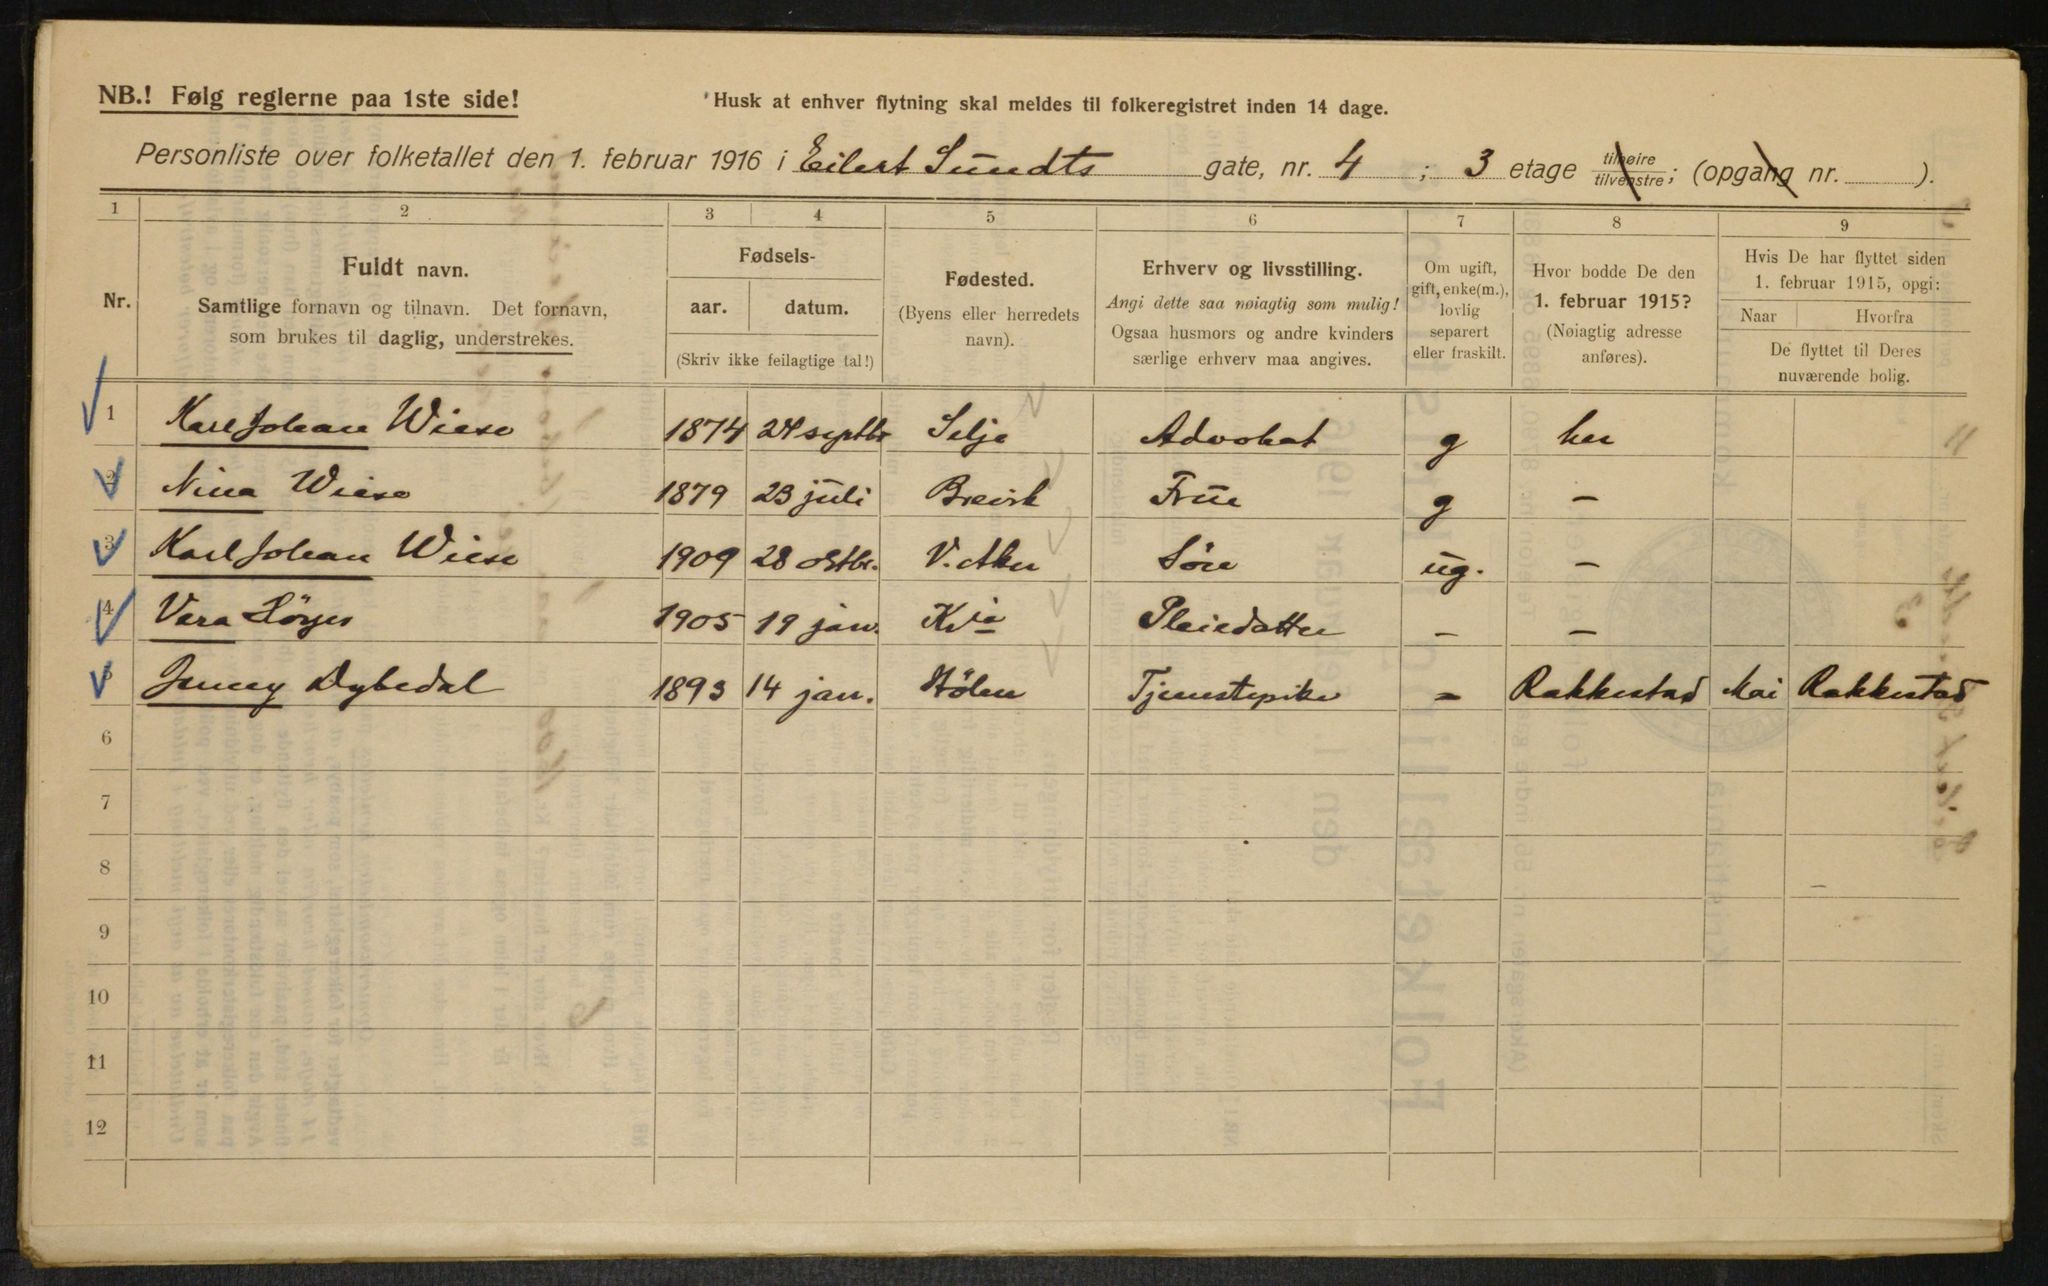 NB.! Følg reglerne paa 1ste side!
Husk at enhver flytning skal meldes til folkeregistret inden 14 dage.
Personliste over folketallet den 1. februar 1916 i Eilert Sundts gate, nr. 4 ; 3 etage tilhøire tilvenstre; (opgang nr. ).
1 2 3 4 5 6 7 8 9
Nr.
Fuldt navn.
Samtlige fornavn og tilnavn. Det fornavn,
som brukes til daglig, understrekes.
Fødsels-
aar. datum.
(Skriv ikke feilagtige tal!)
Fødested.
(Byens eller herredets
navn).
Erhverv og livsstilling.
Angi dette saa nøiagtig som mulig!
Ogsaa husmors og andre kvinders
særlige erhverv maa angives.
Om ugift,
gift, enke(m.),
lovlig
separert
eller fraskilt.
Hvor bodde De den
1. februar 1915?
(Nøiagtig adresse
anføres).
Hvis De har flyttet siden
1. februar 1915, opgi:
Naar Hvorfra
De flyttet til Deres
nuværende bolig.
1 Karl Johan Wiese 1874 24 septbr Selje Advokat g her
2 Nina Wiese 1879 23 juli Brevik Frue g –
3 Karl Johan Wiese 1909 28 oktbr. V. Aker Sön ug. –
4 Vera 1905 19 jan. Kr.ia Pleiedatter – –
5 Jenny Dybedal 1893 14 jan. Hölen Tjenestepike – Rakkestad Mai Rakkestad
6
7
8
9
10
11
12